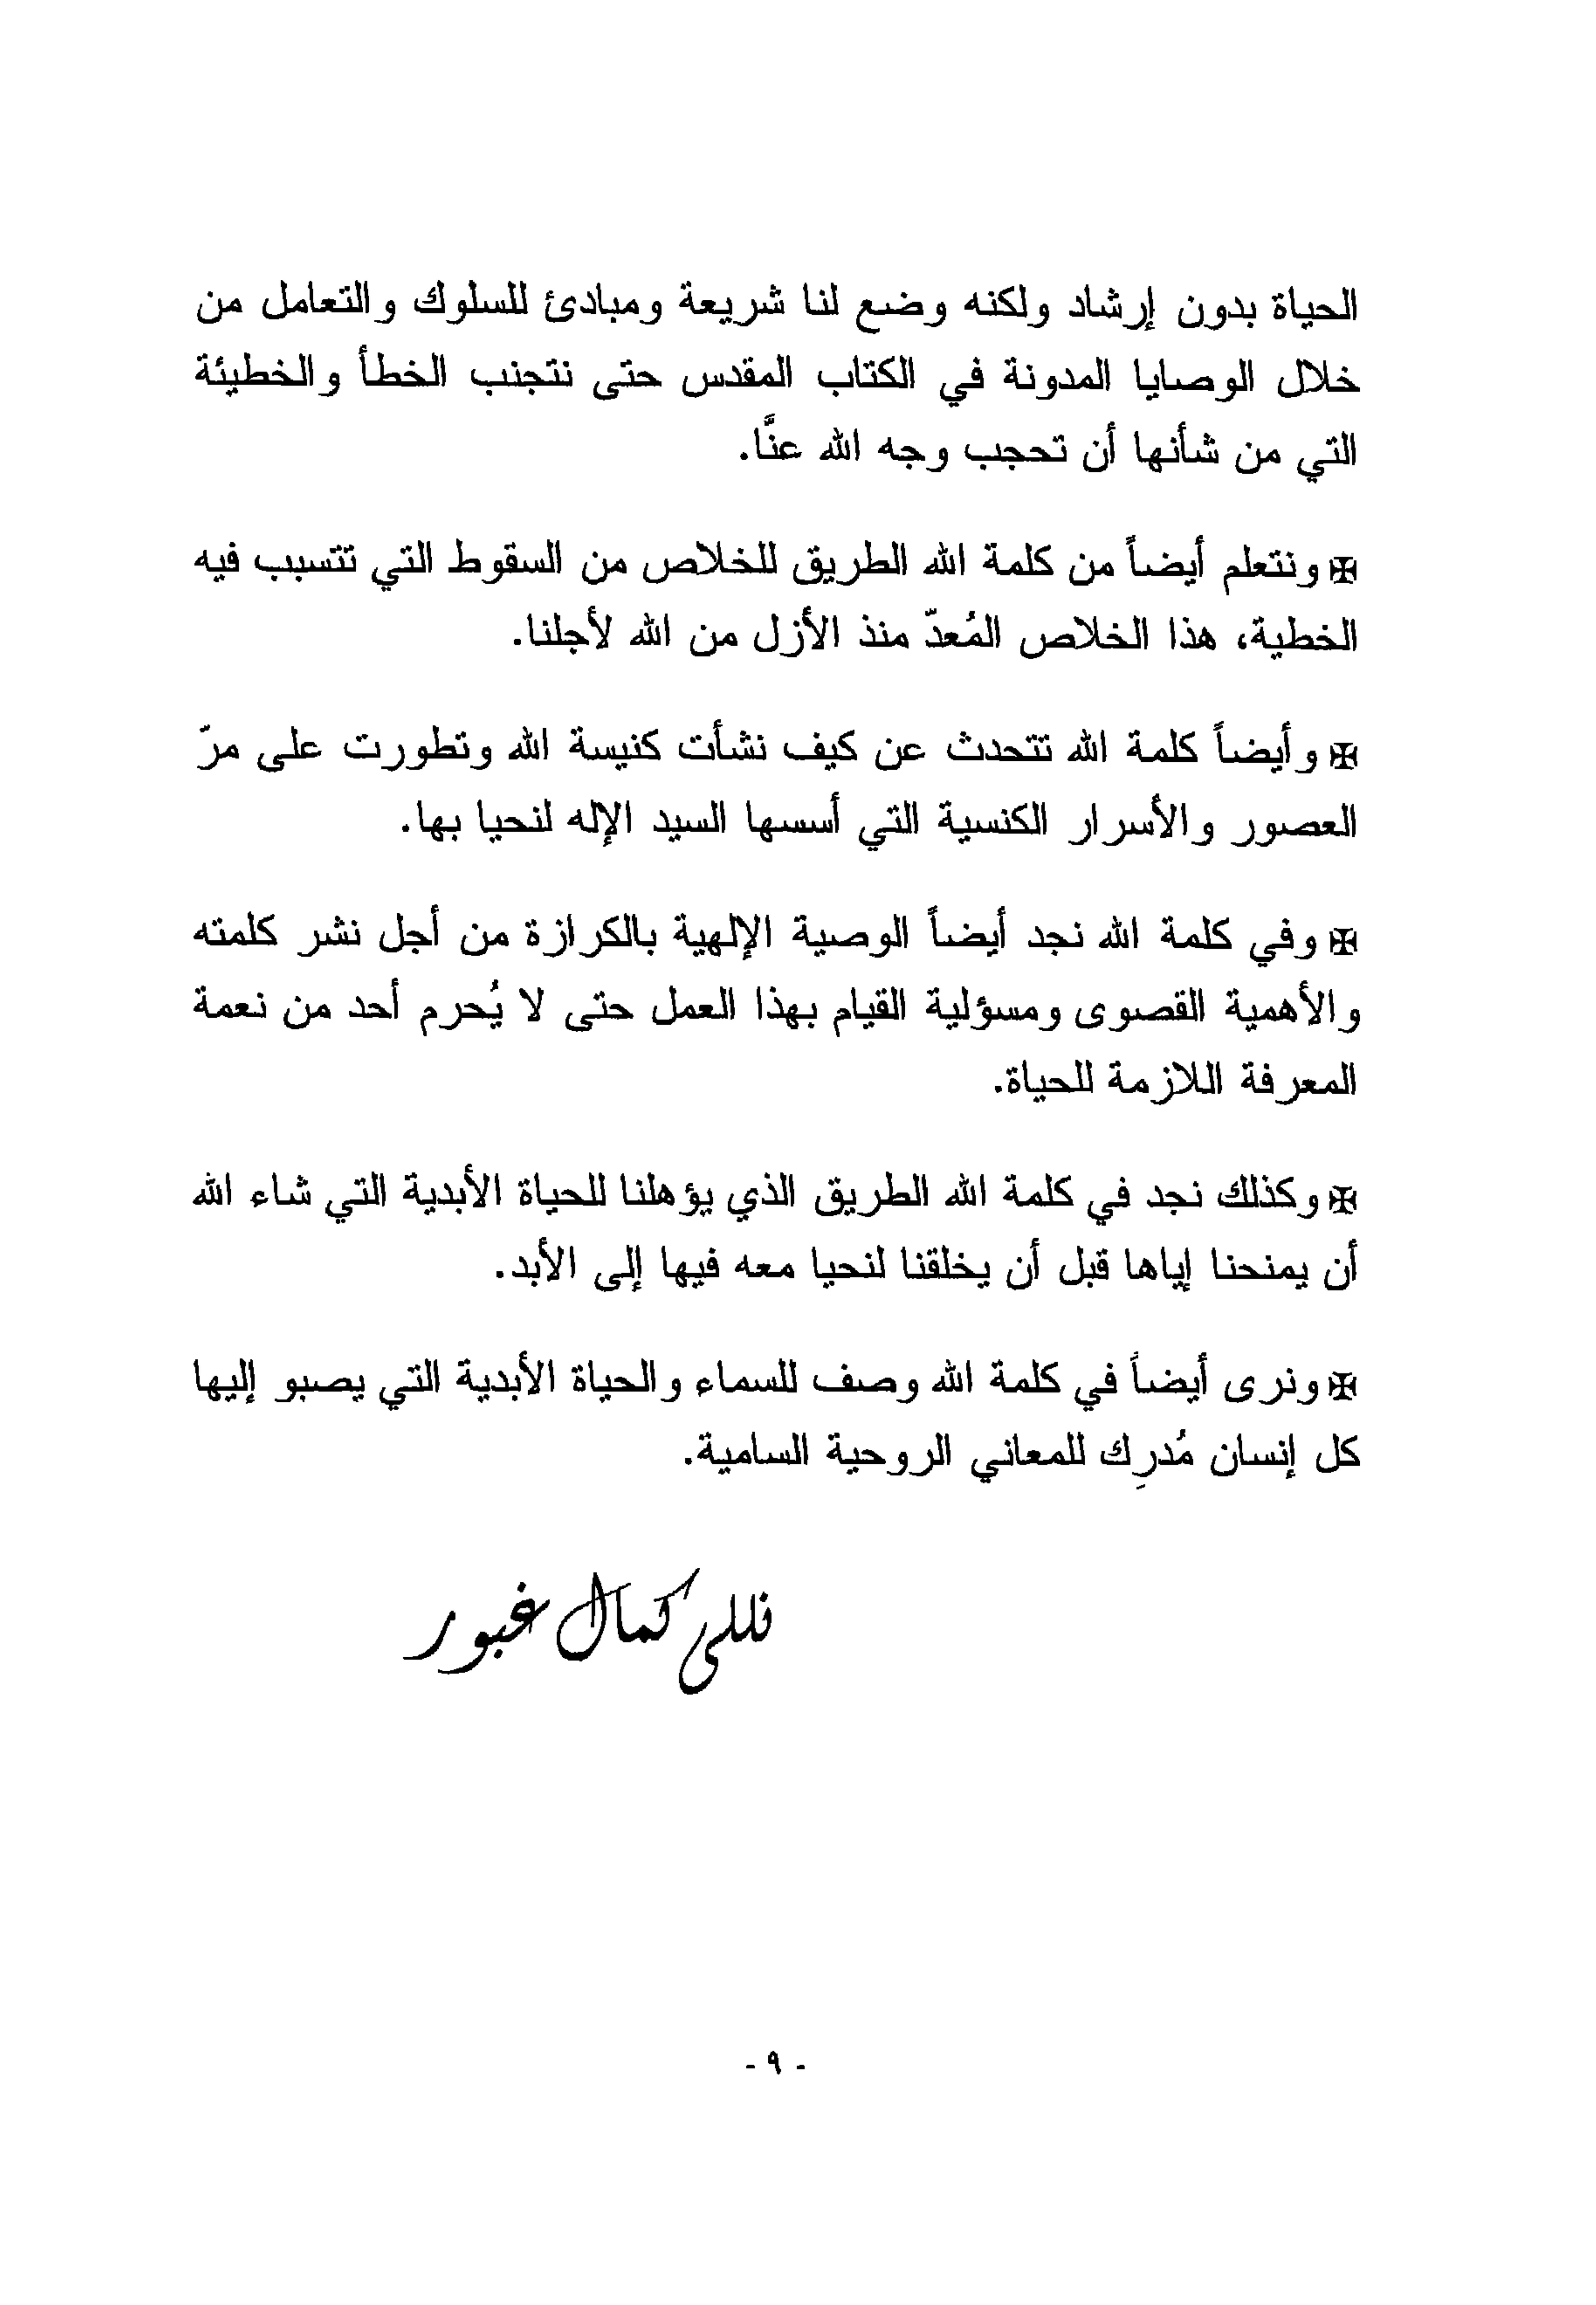 الحياة بدون إرشاد ولكنه وضع لنا شريعة ومبادئ للسلوك والتعامل من
خلال الوصايا المدونة في الكتاب المقدس حتى نتجنب الخطأ والخطيئة
التي من شأنها أن تحجب وجه الله عنَّا.
✠ ونتعلم أيضاً من كلمة الله الطريق للخلاص من السقوط التي تتسبب فيه
الخطية، هذا الخلاص المُعدّ منذ الأزل من الله لأجلنا.
✠ وأيضاً كلمة الله تتحدث عن كيف نشأت كنيسة الله وتطورت على مرّ
العصور والأسرار الكنسية التي أسسها السيد الإله لنحيا بها.
✠ وفي كلمة الله نجد أيضاً الوصية الإلهية بالكرازة من أجل نشر كلمته
والأهمية القصوى ومسؤلية القيام بهذا العمل حتى لا يُحرم أحد من نعمة
المعرفة اللازمة للحياة.
✠ وكذلك نجد في كلمة الله الطريق الذي يؤهلنا للحياة الأبدية التي شاء الله
أن يمنحنا إياها قبل أن يخلقنا لنحيا معه فيها إلى الأبد.
✠ ونرى أيضاً في كلمة الله وصف للسماء والحياة الأبدية التي يصبو إليها
كل إنسان مُدرِك للمعاني الروحية السامية.
نللى كمال غبور
- ٩ -